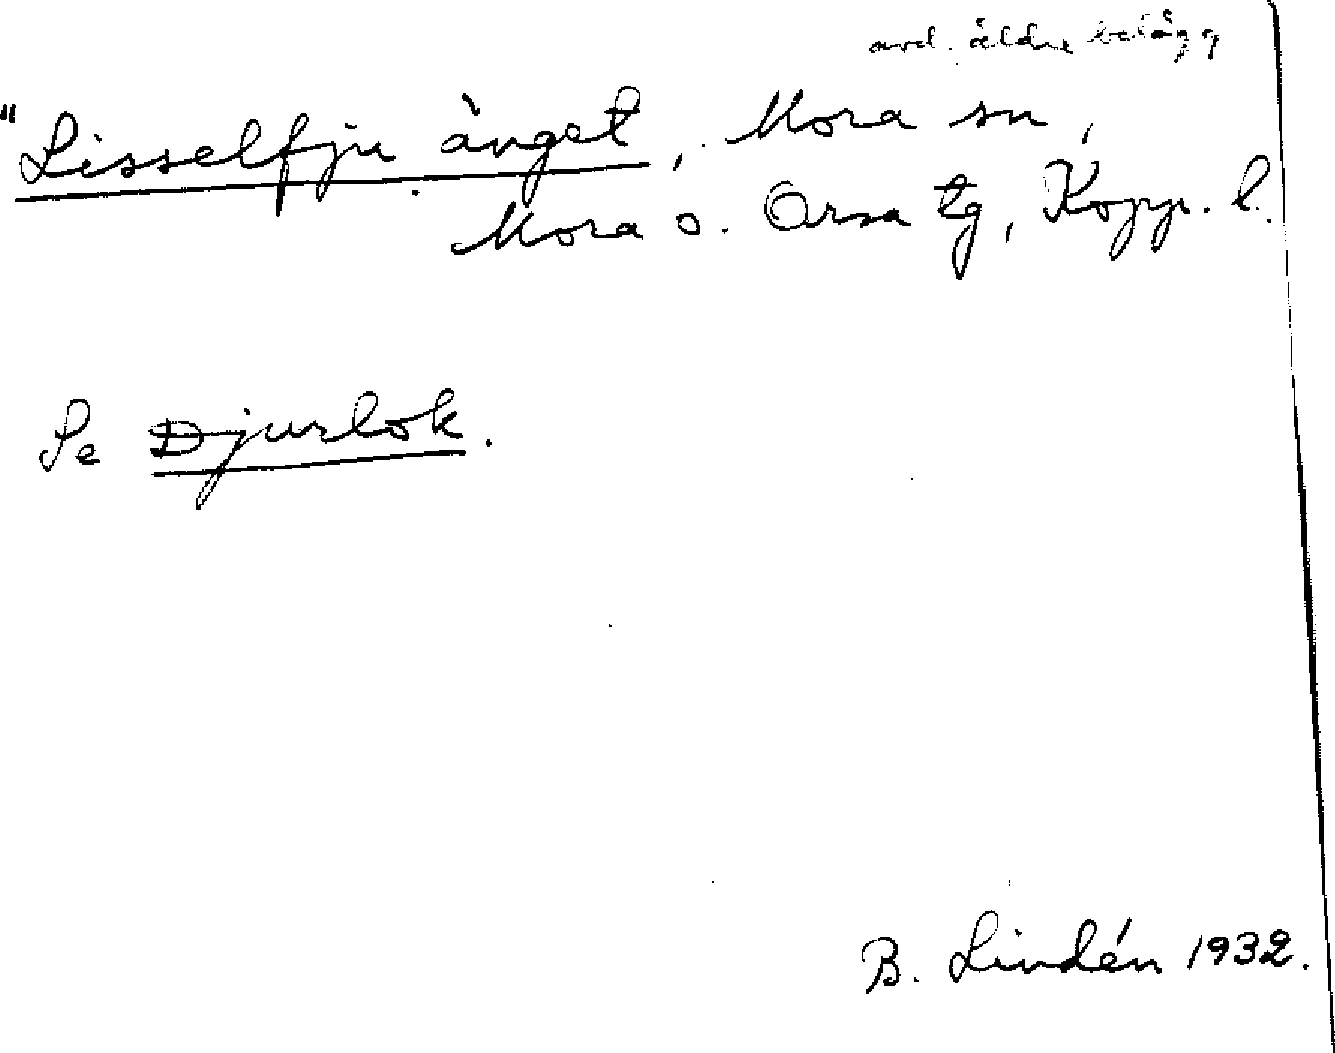 avd. äldre belägg
"Lisselfju änget, Mora sn,
Mora o. Orsa tg, Kopp. l.
Se Djurlok.
B. Lindén 1932.